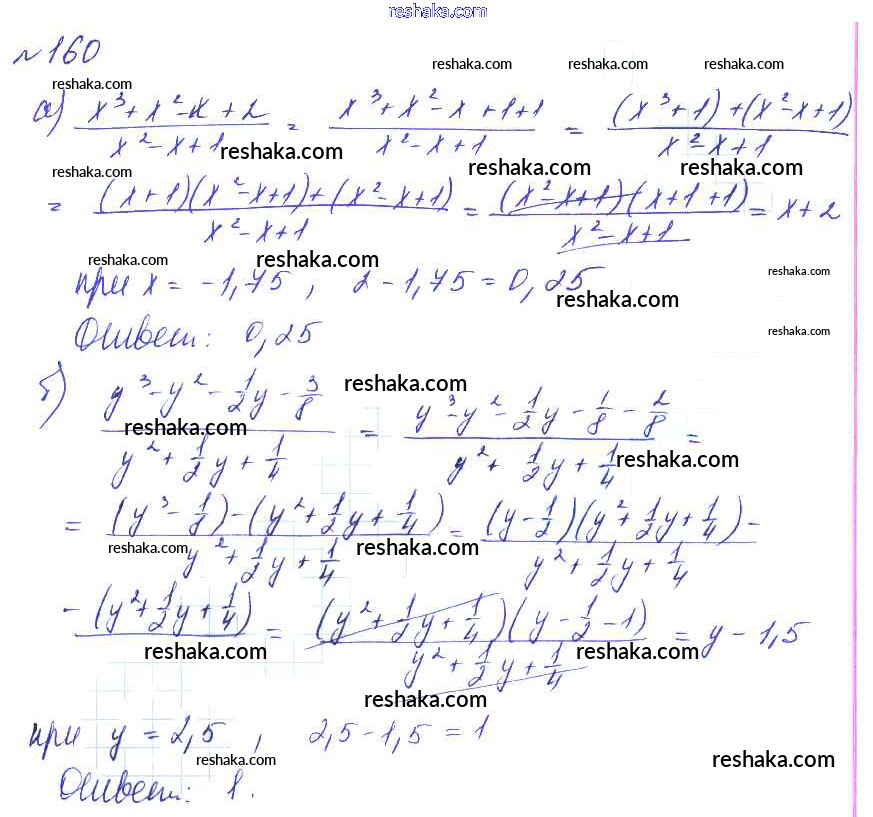 reshaka.com
№160
reshaka.com reshaka.com reshaka.com reshaka.com
а) (x³+x²-x+2)/(x²-x+1) = (x³+x²-x+1+1)/(x²-x+1) = ((x³+1)+(x²-x+1))/(x²-x+1)
reshaka.com reshaka.com reshaka.com
reshaka.com
= ((x+1)(x²-x+1)+(x²-x+1))/(x²-x+1) = ((x²-x+1)(x+1+1))/(x²-x+1) = x+2
reshaka.com reshaka.com reshaka.com
при x = -1,75, 2-1,75=0,25
reshaka.com
Ответ: 0,25
reshaka.com
б) (y³-y²-1/2y-3/8)/(y²+1/2y+1/4) = (y³-y²-1/2y-1/8-2/8)/(y²+1/2y+1/4) =
reshaka.com reshaka.com reshaka.com
= ((y³-1/8)-(y²+1/2y+1/4))/(y²+1/2y+1/4) = ((y-1/2)(y²+1/2y+1/4)-)/(y²+1/2y+1/4)
reshaka.com reshaka.com
-(y²+1/2y+1/4) = ((y²+1/2y+1/4)(y-1/2-1))/(y²+1/2y+1/4) = y-1,5
reshaka.com reshaka.com
reshaka.com
при y = 2,5, 2,5-1,5=1
reshaka.com reshaka.com
Ответ: 1.